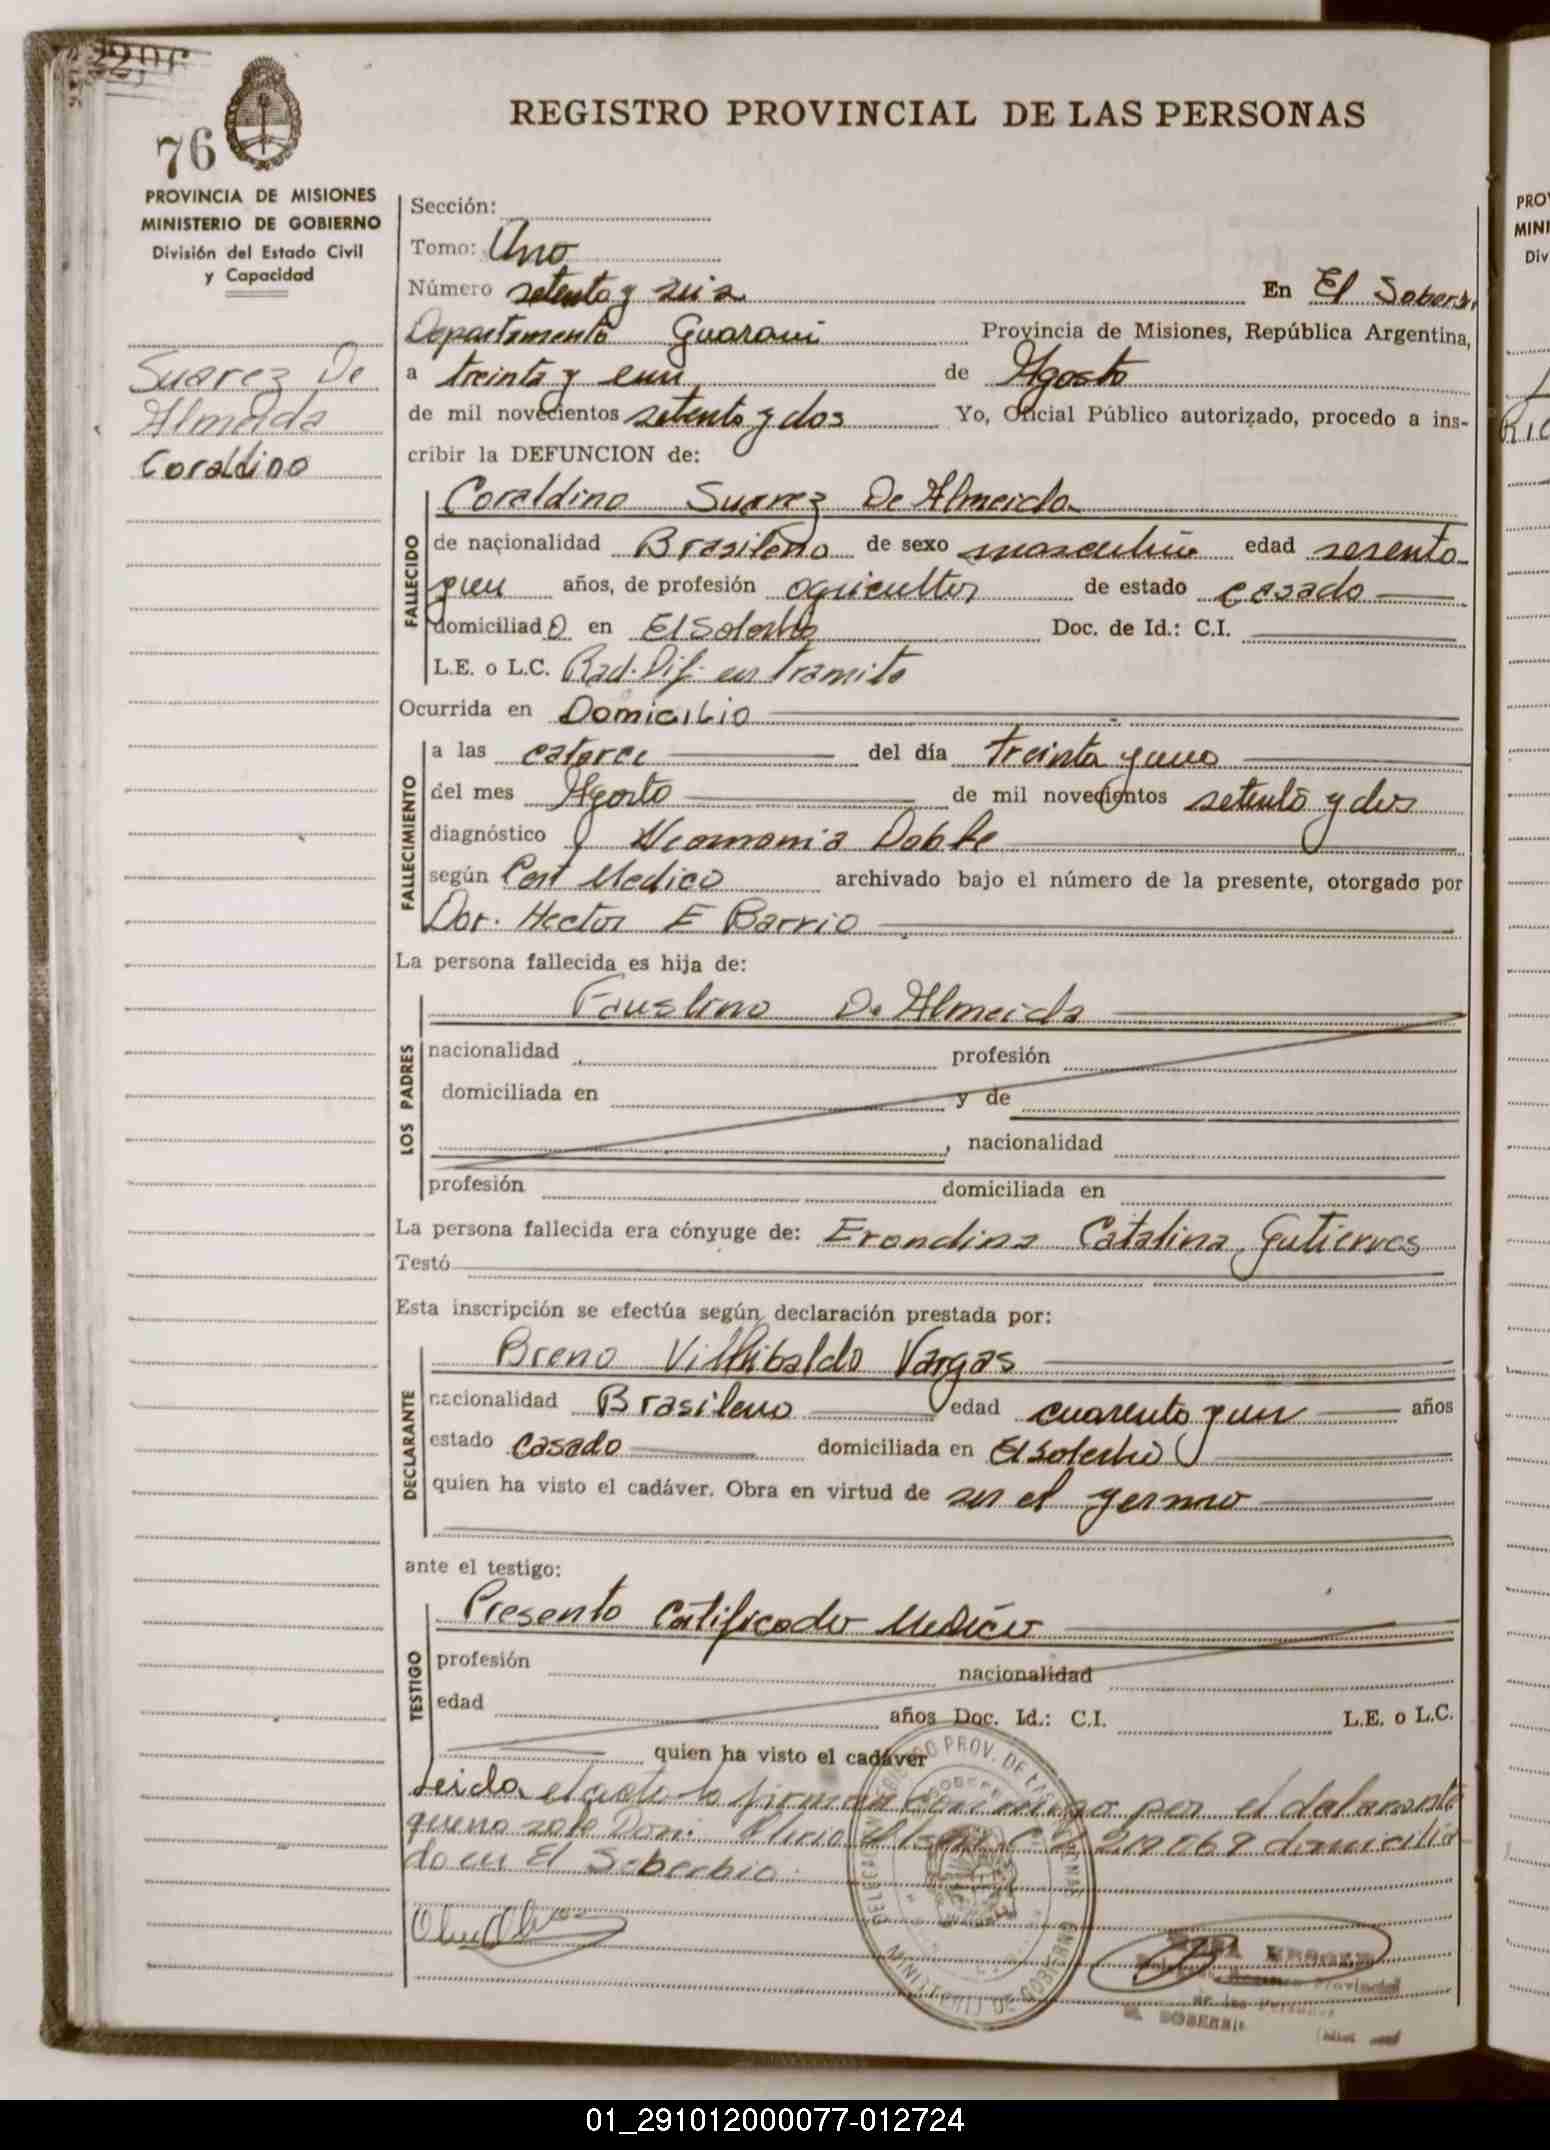 76
REGISTRO PROVINCIAL DE LAS PERSONAS
PROVINCIA DE MISIONES
MINISTERIO DE GOBIERNO
División del Estado Civil
y Capacidad
Suarez De
Almeida
Coraldino
Sección:
Tomo: Uno
Número setenta y seis En El Soberbio
Departamento Guarani Provincia de Misiones, República Argentina,
a treinta y un de Agosto
de mil novecientos setenta y dos Yo, Oficial Público autorizado, procedo a ins-
cribir la DEFUNCION de:
FALLECIDO
Coraldino Suarez De Almeida
de nacionalidad Brasileño de sexo masculino edad sesenta
y un años, de profesión agricultor de estado casado
domiciliado en El Soberbio Doc. de Id.: C.I.
L.E. o L.C. Rad. Dif. en Tramite
Ocurrida en Domicilio
FALLECIMIENTO
a las catorce del día treinta y uno
del mes Agosto de mil novecientos setenta y dos
diagnóstico Neumonia Doble
según Cert Medico archivado bajo el número de la presente, otorgado por
Dor. Hector E Barrio
La persona fallecida es hija de:
LOS PADRES
Faustino De Almeida
nacionalidad profesión
domiciliada en y de
, nacionalidad
profesión domiciliada en
La persona fallecida era cónyuge de: Erondina Catalina Gutierres
Testó
Esta inscripción se efectúa según declaración prestada por:
DECLARANTE
Breno Villhibaldo Vargas
nacionalidad Brasileno edad cuarenta y un años
estado casado domiciliada en El Soberbio
quien ha visto el cadáver. Obra en virtud de ser el yerno
ante el testigo:
TESTIGO
Presento Certificado Medico
profesión nacionalidad
edad años Doc. Id.: C.I. L.E. o L.C.
quien ha visto el cadáver
Leida el acta la firman conmigo por el declarante
que no sabe Don: domicilia
do en El Soberbio.
MINISTERIO DE GOBIERNO
Registro Provincial
de las Personas
EL SOBERBIO
01_291012000077-012724